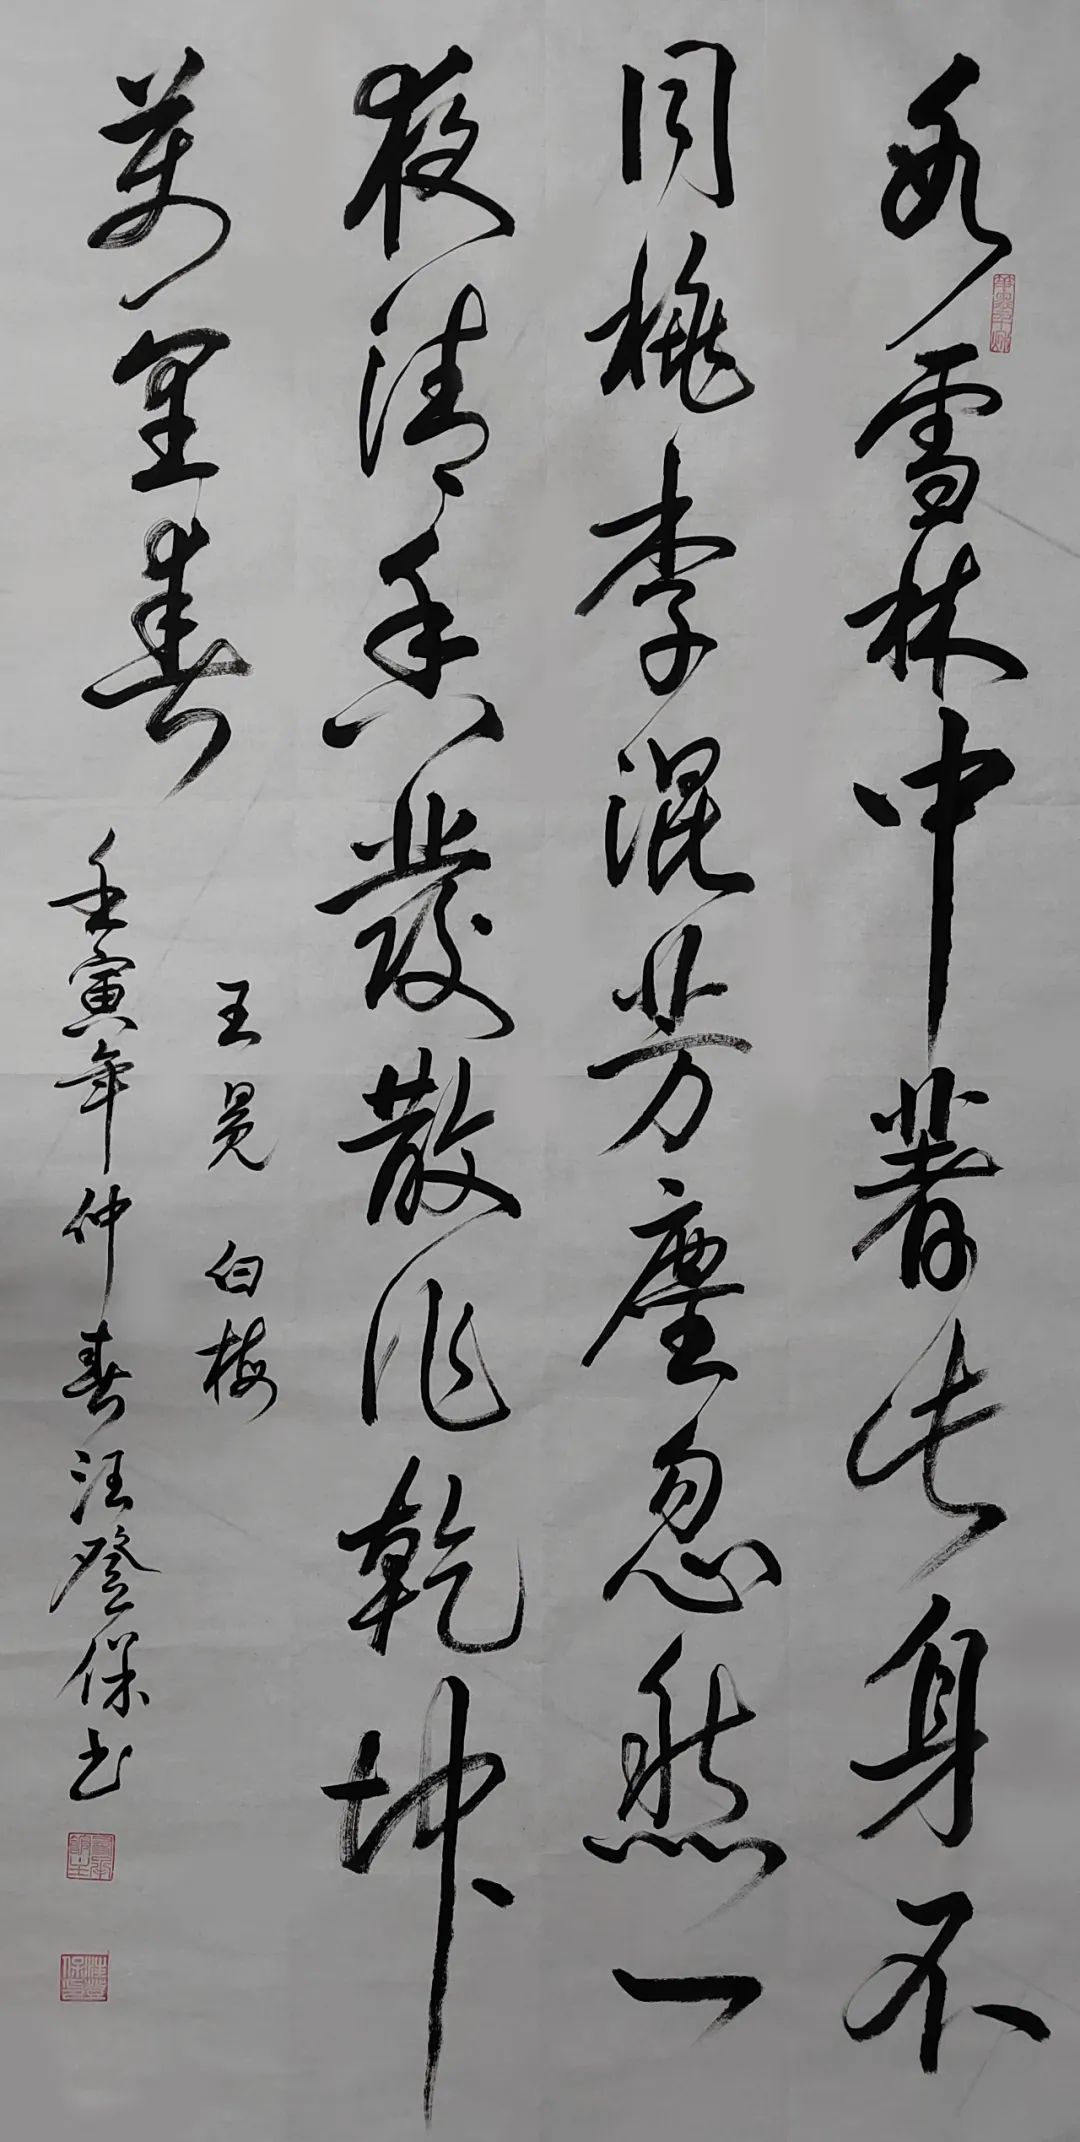 冰雪林中著此身不
同桃李混芳塵忽然一
夜清香發散作乾坤
萬里春
王冕 白梅
壬寅年仲春汪登保书